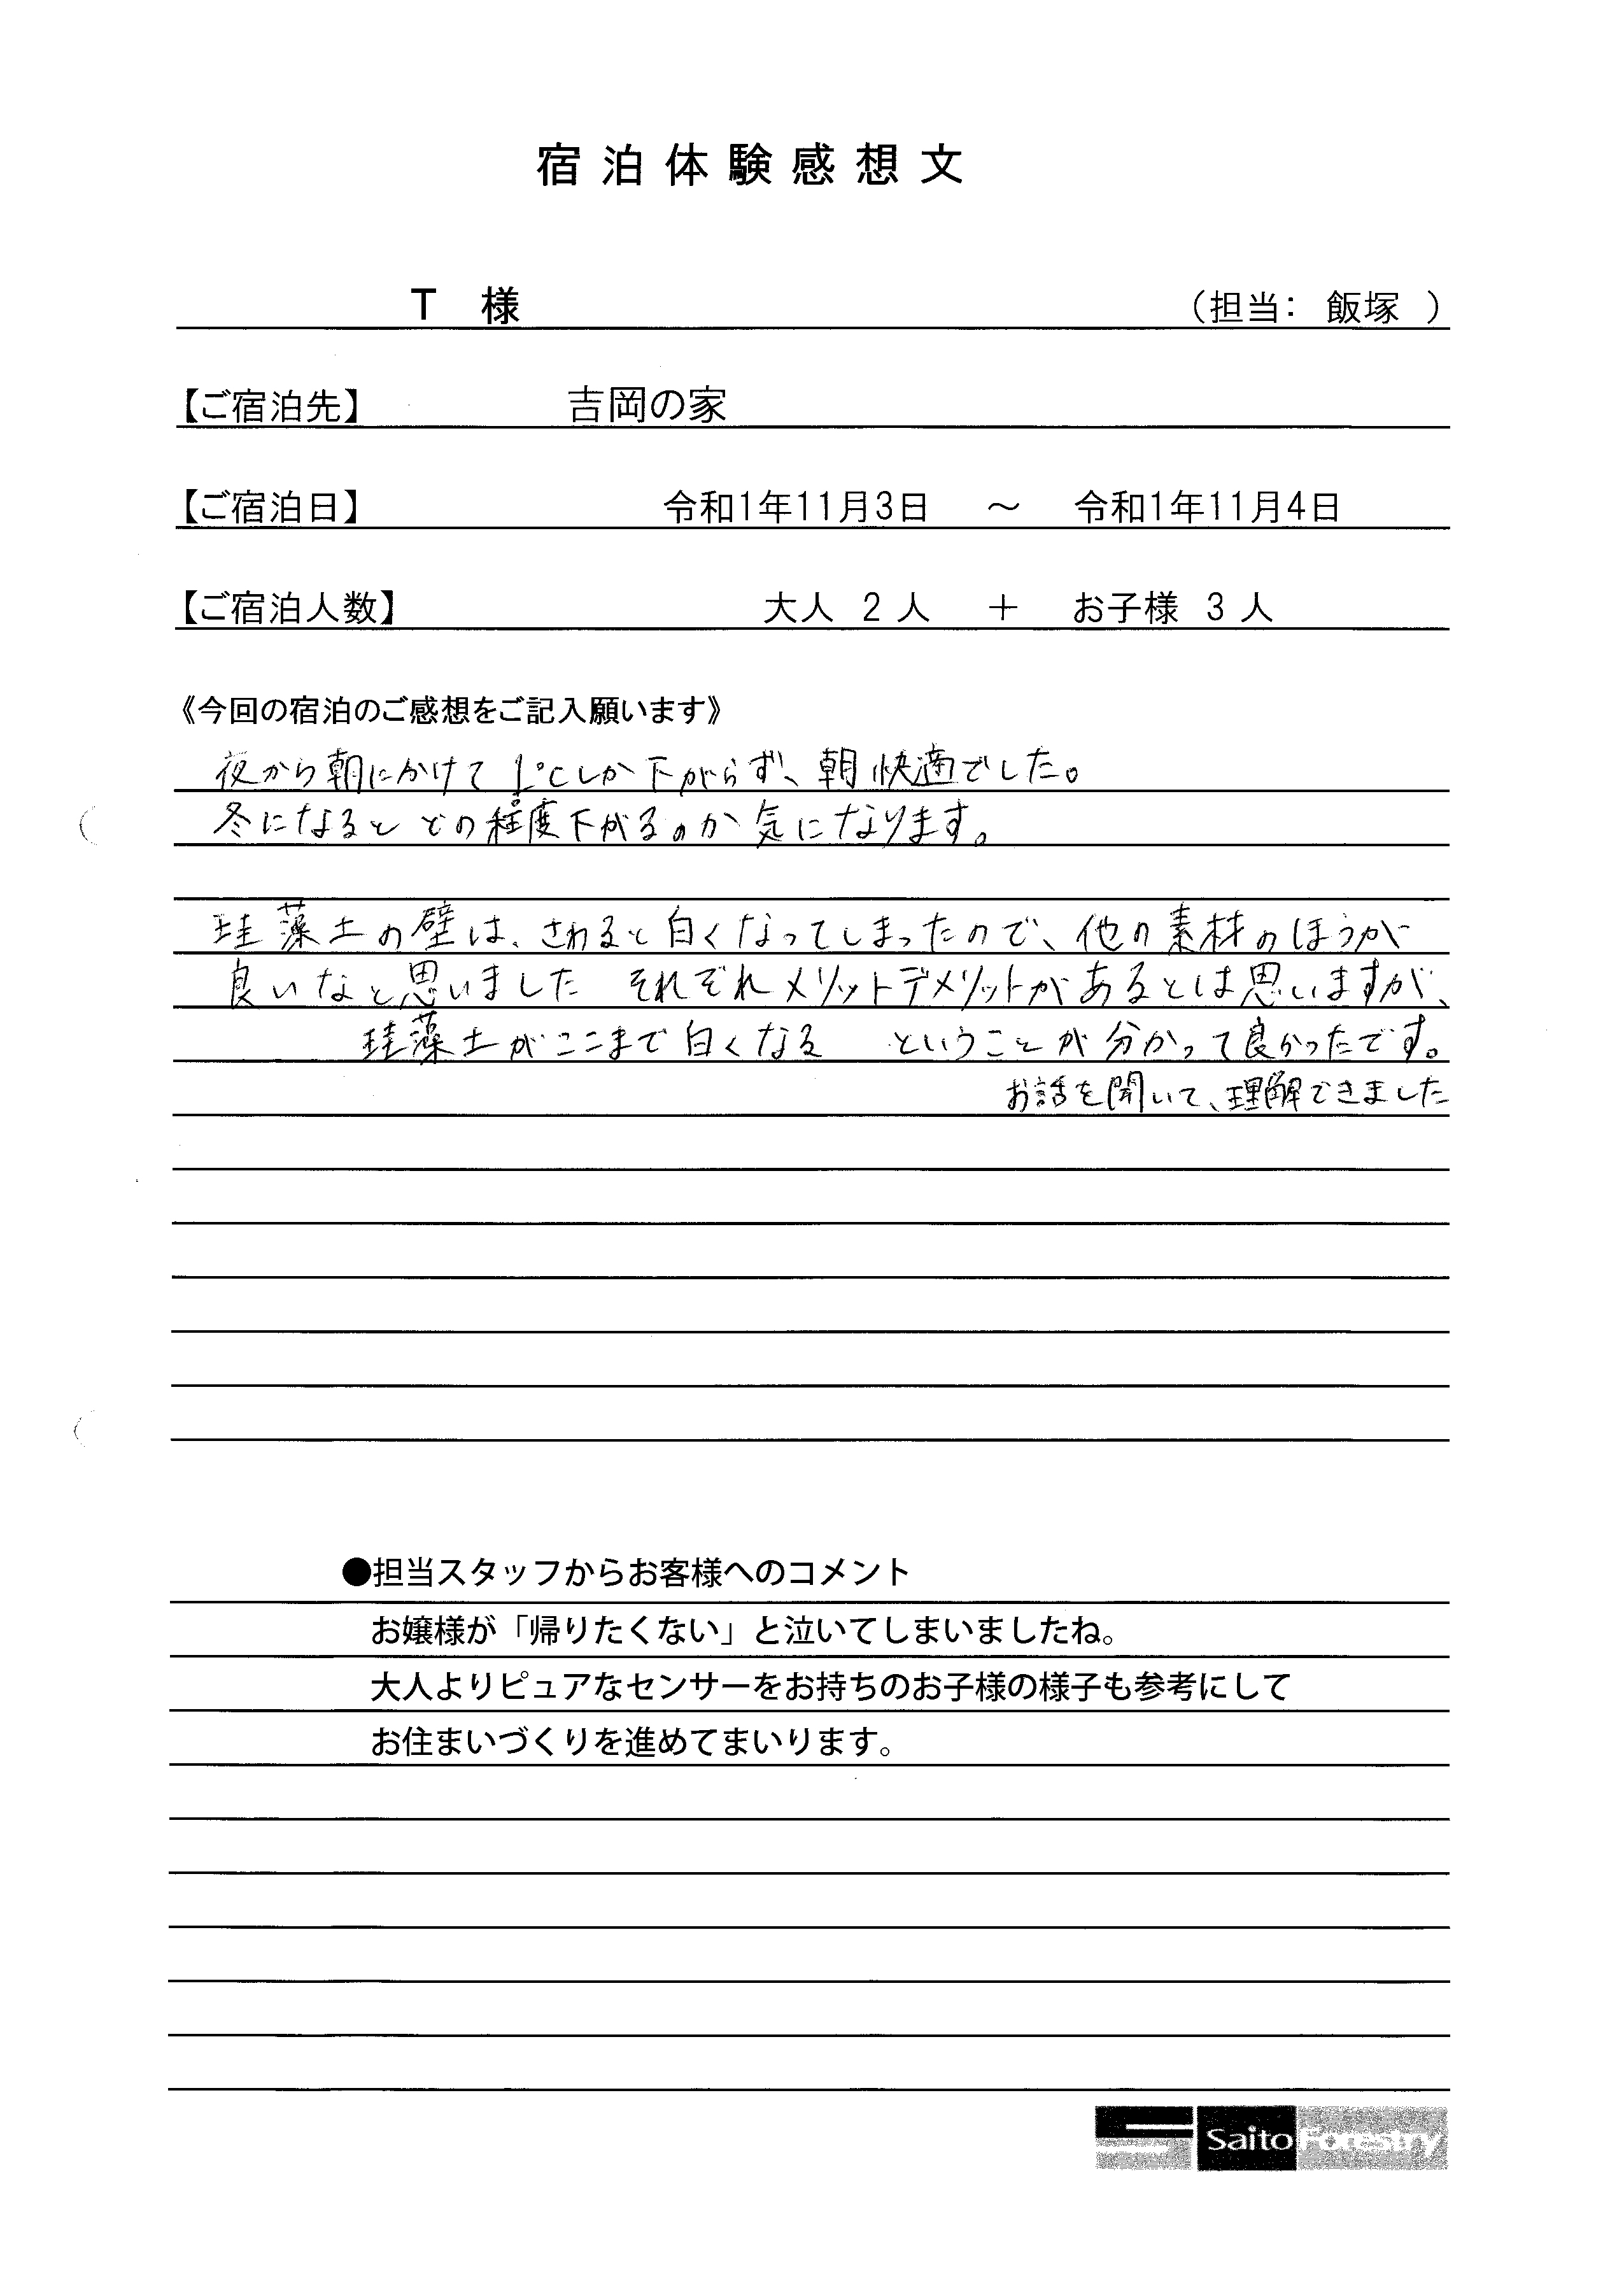 宿泊体験感想文
T 様 (担当: 飯塚 )
【ご宿泊先】 吉岡の家
【ご宿泊日】 令和1年11月3日 ～ 令和1年11月4日
【ご宿泊人数】 大人 2 人 ＋ お子様 3 人
《今回の宿泊のご感想をご記入願います》
夜から朝にかけて1℃しか下がらず、朝快適でした。
冬になるとどの程度下がるのか気になります。
珪藻土の壁は、さわると白くなってしまったので、他の素材のほうが
良いなと思いました それぞれメリットデメリットがあるとは思いますが、
珪藻土がここまで白くなる ということが分かって良かったです。
お話を聞いて、理解できました
●担当スタッフからお客様へのコメント
お嬢様が「帰りたくない」と泣いてしまいましたね。
大人よりピュアなセンサーをお持ちのお子様の様子も参考にして
お住まいづくりを進めてまいります。
Saito Forestry